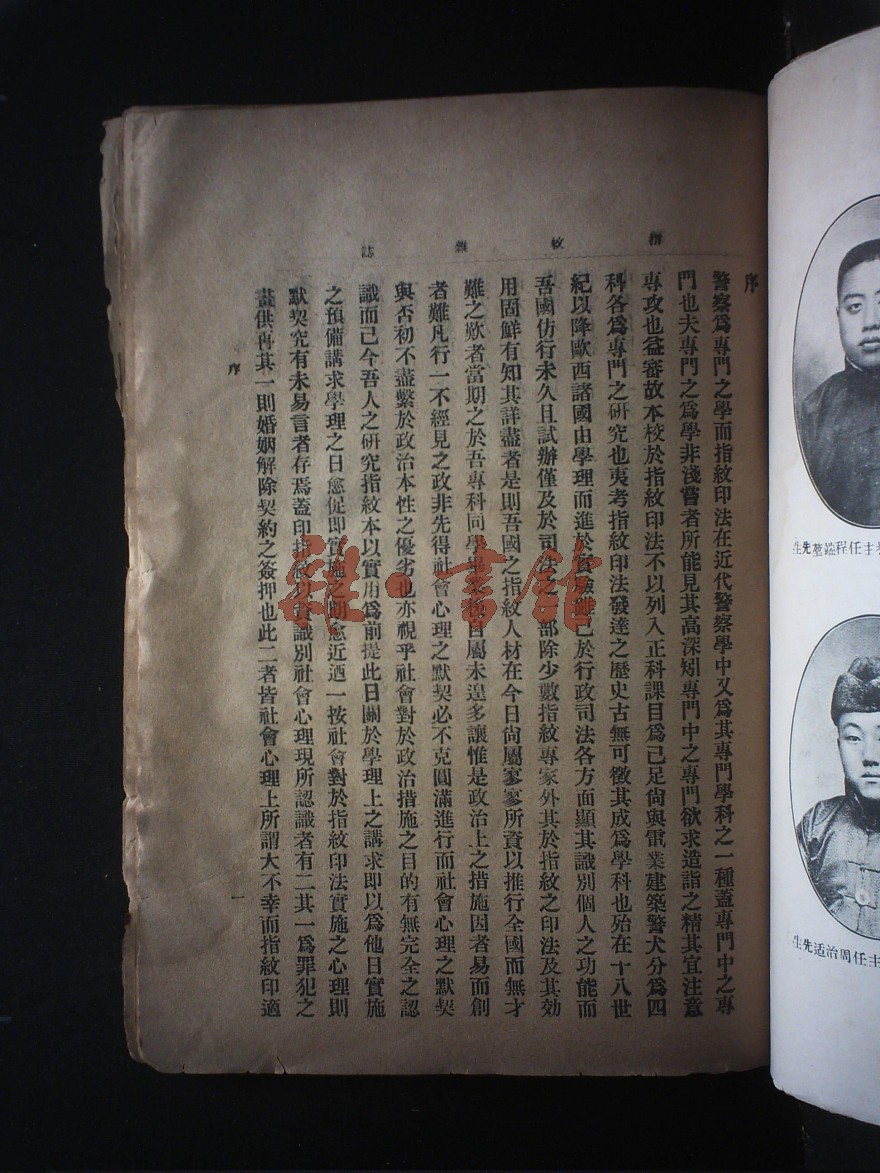 指紋雜誌
序
警察爲專門之學而指紋印法在近代警察學中又爲其專門學科之一種蓋專門中之專
門也夫專門之爲學非淺嘗者所能見其高深矧專門中之專門欲求造詣之精其宜注意
專攻也益審故本校於指紋印法不以列入正科課目爲已足尙與電業建築警犬分爲四
科各爲專門之研究也夷考指紋印法發達之歷史古無可徵其成爲學科也殆在十八世
紀以降歐西諸國由學理而進於實驗 已於行政司法各方面顯其識別個人之功能而
吾國仿行未久且試辦僅及於司法之 部除少數指紋專家外其於指紋之印法及其效
用固鮮有知其詳盡者是則吾國之指紋人材在今日尙屬寥寥所資以推行全國而無才
難之歎者當期之於吾專科同學畢業後自屬未遑多讓惟是政治上之措施因者易而創
者難凡行一不經見之政非先得社會心理之默契必不克圓滿進行而社會心理之默契
與否初不盡繫於政治本性之優劣也亦視乎社會對於政治措施之目的有無完全之認
識而已今吾人之研究指紋本以實用爲前提此日關於學理上之講求即以爲他日實施
之預備講求學理之日愈促即實施之期愈近迺一按社會對於指紋印法實施之心理則
默契究有未易言者存焉蓋印指紋以資識別社會心理現所認識者有二其一爲罪犯之
畫供再其一則婚姻解除契約之簽押也此二者皆社會心理上所謂大不幸而指紋印適
序
一
主任程 先生
主任周治适先生
雜·書館